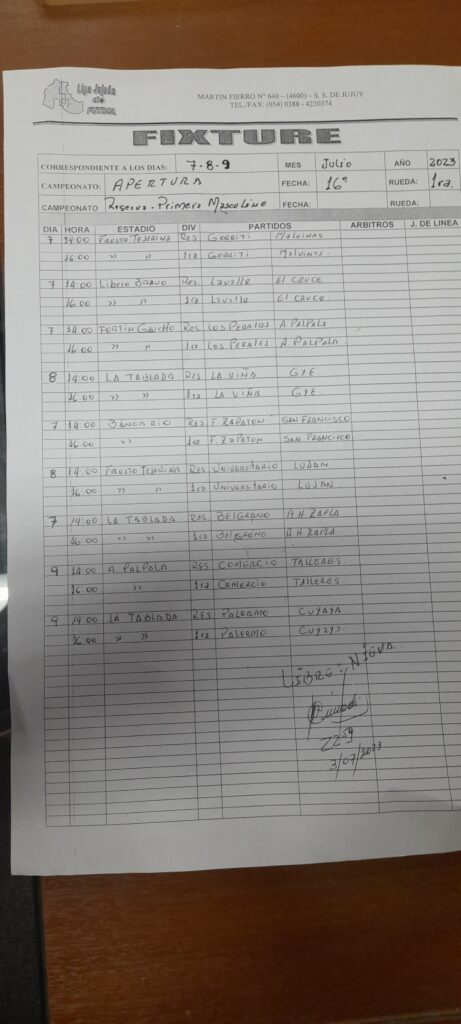 Liga Jujeña
de
FUTBOL
MARTIN FIERRO Nº 640 – (4600) – S. S. DE JUJUY
TEL./FAX: (054) 0388 - 4230374
FIXTURE
CORRESPONDIENTE A LOS DIAS: 7-8-9 MES Julio AÑO 2023
CAMPEONATO: APERTURA FECHA: 16ª RUEDA: 1ra.
CAMPEONATO Reserva - Primera Masculino FECHA: RUEDA:
DIA HORA ESTADIO DIV PARTIDOS ARBITROS J. DE LINEA
7 14:00 FAUSTO TESERINA RES GORRITI MALVINAS
16:00 " " 1ra GORRITI MALVINAS
7 14:00 Libero BRAVO RES. Lavalle EL CRUCE
16:00 " " 1ra Lavalle EL CRUCE
7 14:00 FORTIN GAUCHO RES LOS PERALES A PALPALA
16:00 " " 1ra LOS PERALES A. PALPALA
8 14:00 LA TABLADA RES LA VIÑA GYE
16:00 " " 1ra LA VIÑA GYE
7 14:00 BANCARIO RES F. ZAPATON SAN FRANCISCO
16:00 " 1ra F. ZAPATON SAN FRANCISCO
8 14:00 FAUSTO TESERINA RES UNIVERSITARIO LUJAN
16:00 " " 1ra UNIVERSITARIO LUJAN
7 14:00 LA TABLADA RES. BELGRANO A.H. ZAPLA
16:00 " " 1ra BELGRANO A.H. ZAPLA
9 14:00 A. PALPALA RES COMERCIO TALLERES
16:00 " 1ra COMERCIO TALLERES.
9 14:00 LA TABLADA RES PALERMO CUYAYA
16:00 " " 1ra PALERMO CUYAYA
LIBRE: NIEVA
2259
3/07/2023